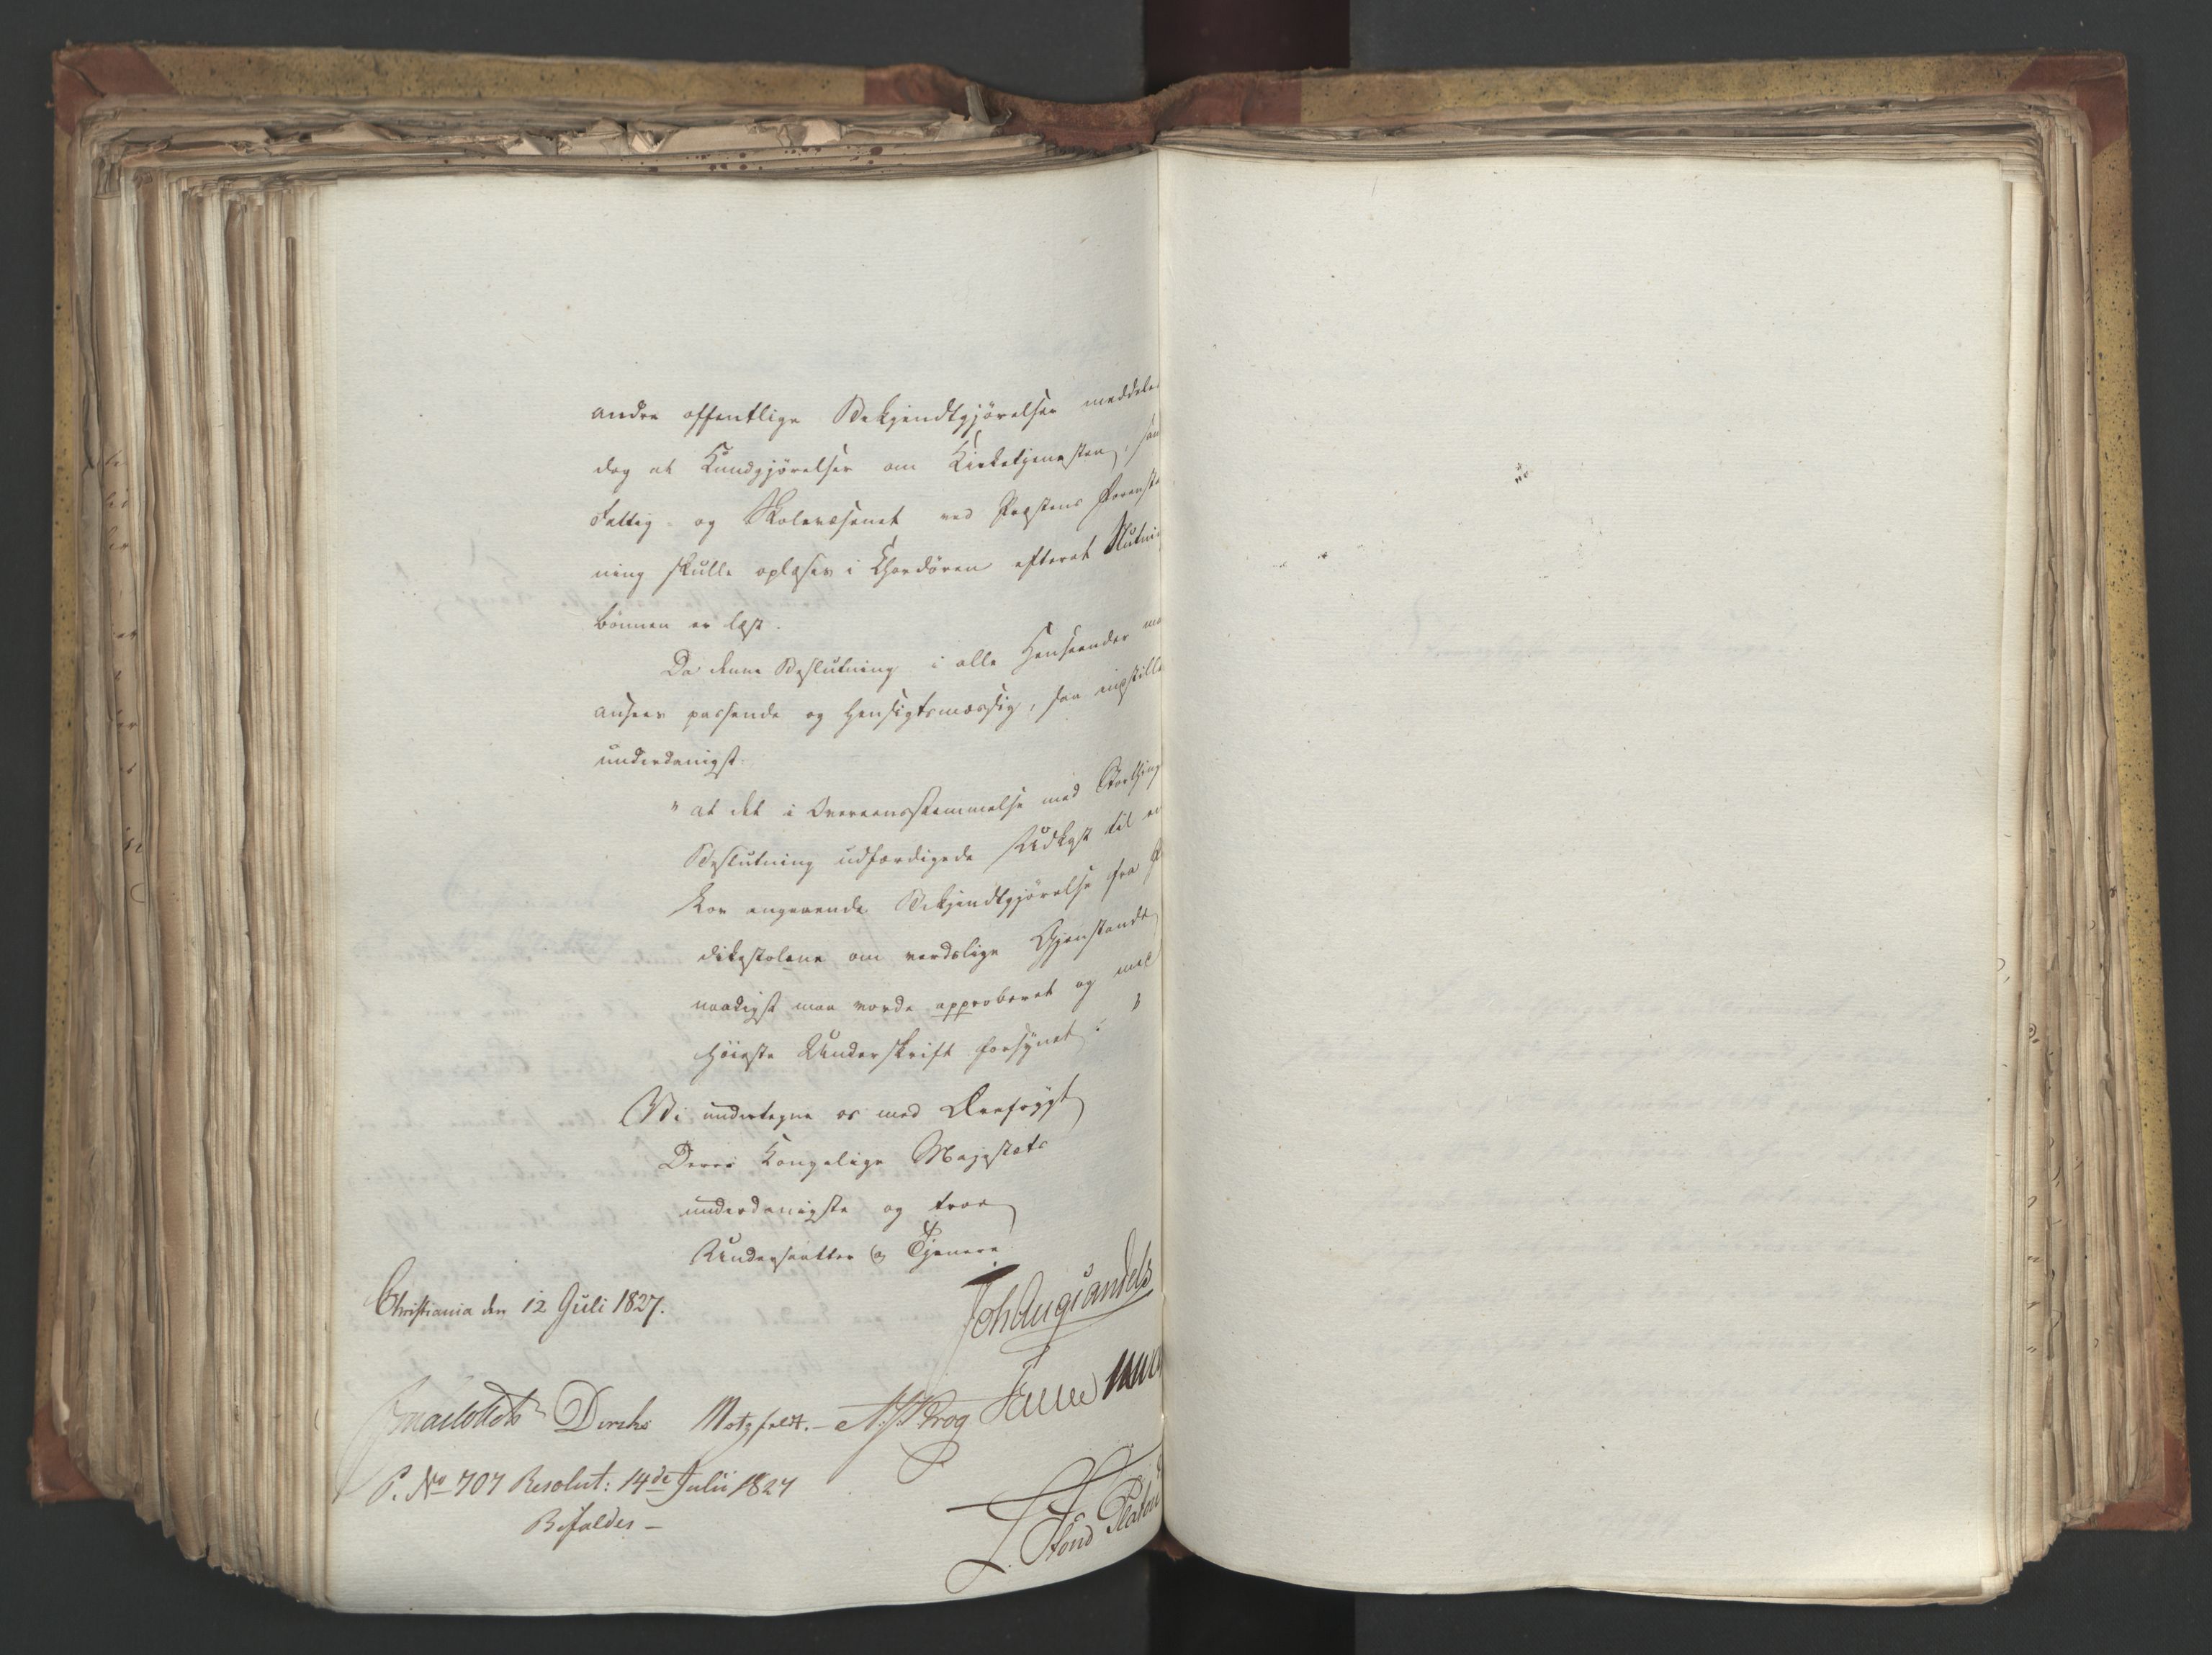 andre offentlige Bekjendtgjörelser meddeles
dog at Kundgjörelser om Kirketjenesten, sam
Fattig- og Skolevæsenet ved Præstens Foransta
ning skulle oplæses i Chordören efterat Slutni
bönnen er læst.
Da denne Beslutning i alle Henseender maa
ansees passende og hensigtsmæssig, saa indstilles
underdanigst:
" at det i Overeensstemmelse med Storthing
Beslutning udfærdigede Udkast til en
Lov angaaende Bekjendtgjörelse fra Præ
dikestolene om verdslige Gjenstande
naadigst maa vorde approberet og med
höieste Underskrift forsynet. "
Vi undertegne os med Ærefrygt
Deres Kongelige Majestæts
underdanigste og troe
Undersaatter og Tjenere
Christiania den 12 Juli 1827.
Joh Aug Sandels
Diriks Motzfeldt. Krog
P. No 707 Resolut: 14de Julii 1827
Bifaldes –
Platou